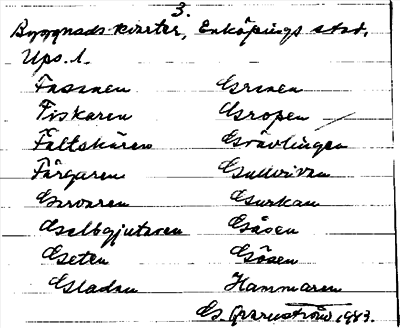 3.
Byggnads kvarter, Enköpings stad,
Ups. l.
Fasanen Grinen
Fiskaren Gropen
Fältskären Grävlingen
Färgaren Gullvivan
Garvaren Gurkan
Gelbgjutaren Gåsen
Geten Gösen
Gladan Hammaren
G. 1983.